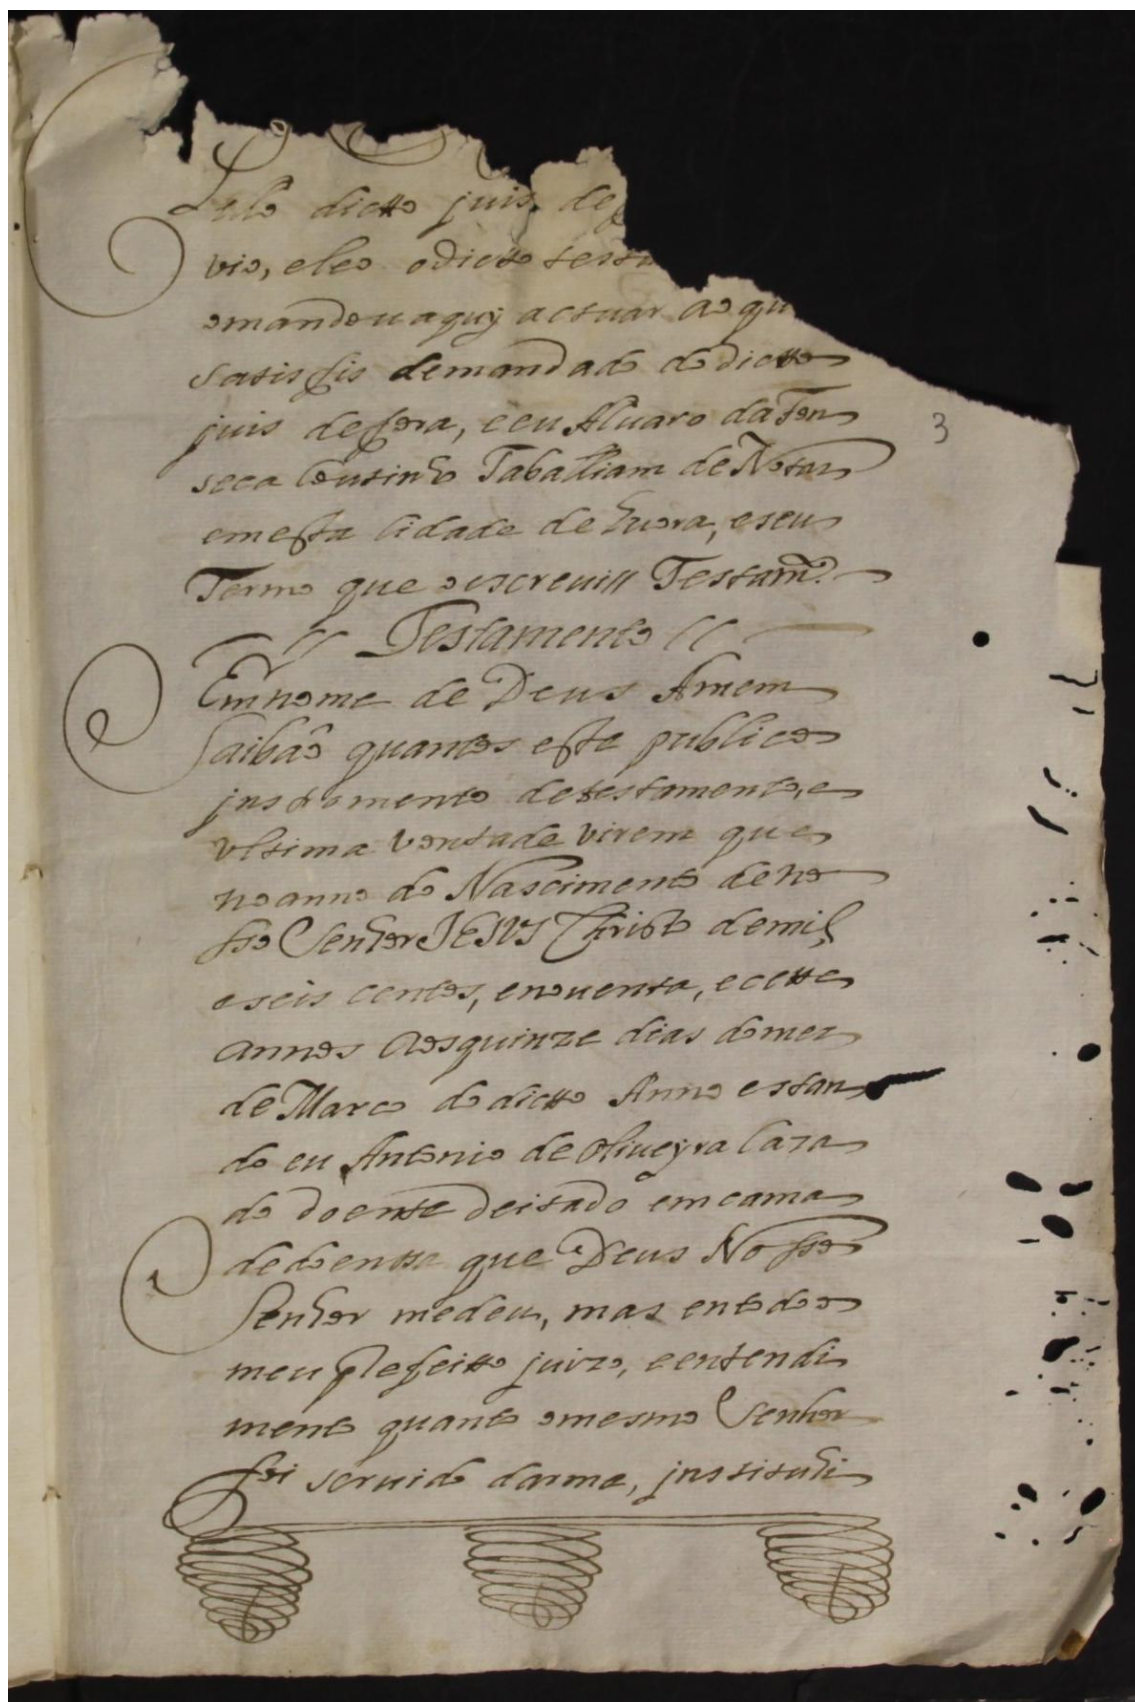 dicto juis de
vio, eleo odicto testa
omandou aquy actuar ao qu
satisfis demandado do dicto
juis defora, eeu Alvaro daFon
seca Coutinho Taballiam de Notas
emesta Cidade de Euora, eseu
Termo que oescreui// Testamto.
// Testamento //
Em nome de Deus Amem
Saibão quantos este publico
jnstromento detestamento, e
vltima vontade virem que
noanno do Nascimento deno
sso Senhor JESUS Christo demil
eseis centos, enouenta, ecette
annos Aosquinze dias domes
de Março dodicto Anno estan
do eu Antonio de Oliueyra Caza
do doente deitado emcama
dedoentte que Deus Nosso
Senhor medeu, mas entodoo
meu prefeitto juizo, eentendi
mento quanto omesmo Senhor
foi seruido darme, jnstituhi
3